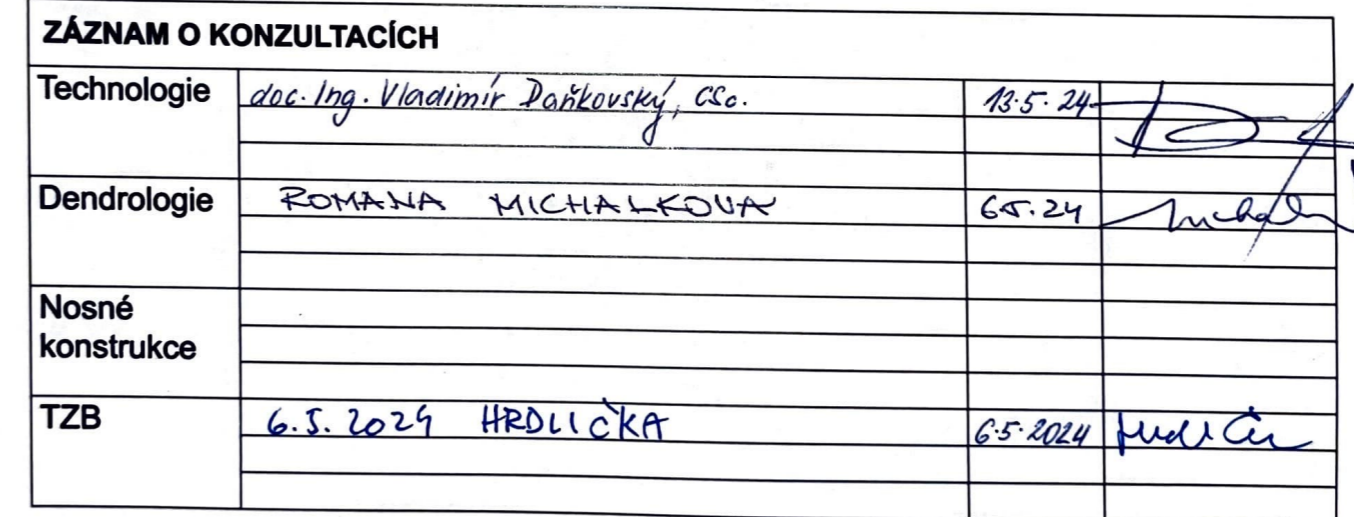 ZÁZNAM O KONZULTACÍCH
Technologie doc. Ing. Vladimír Daňkovský, CSc. 13.5.24
Dendrologie ROMANA MICHALKOVA 6.5.24
Nosné
konstrukce
TZB 6.5.2024 HRDLIČKA 6.5.2024